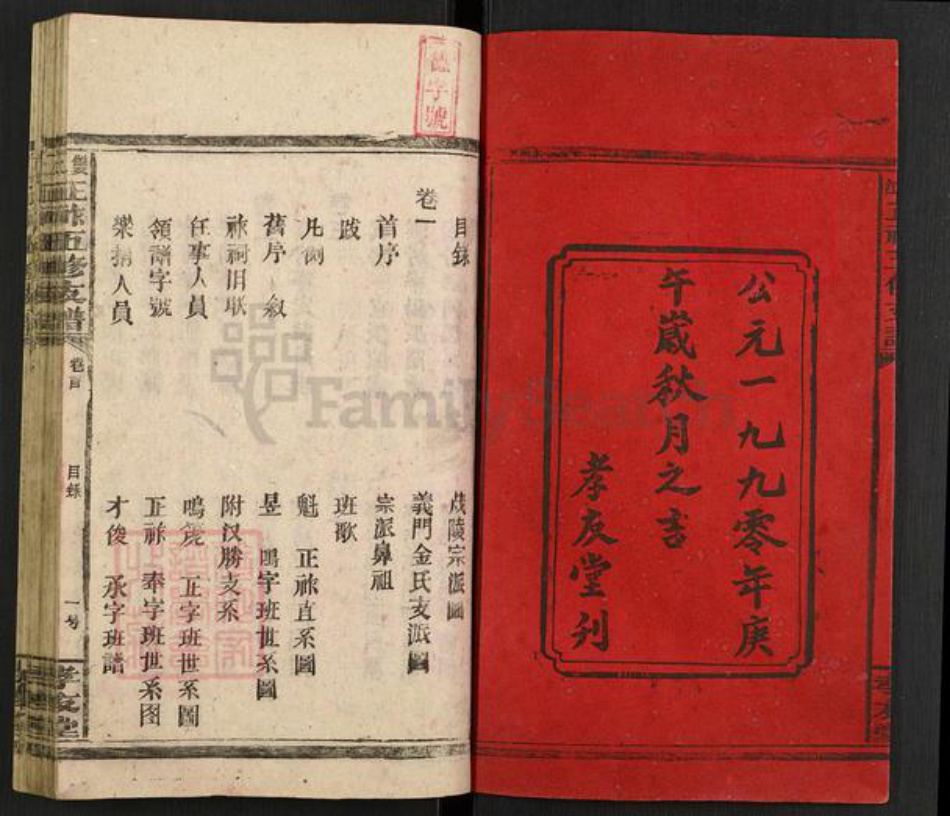 公元一九九零年庚
午歲秋月之吉
孝友堂刋
字號
目錄
卷一
首序
跋
凡例
舊序 叙
祚祠旧联
任事人員
領譜字號
樂捐人員
茂陵宗派圖
義門金氏支派圖
宗派鼻祖
班歌
魁 正祚直系圖
昱 鳴字班世系圖
附汉勝支系
鳴篪 正字班世系圖
正祚 奉字班世系图
才俊 承字班譜
正祚五修支譜
卷首
目錄
一号
孝友堂
FamilySearch